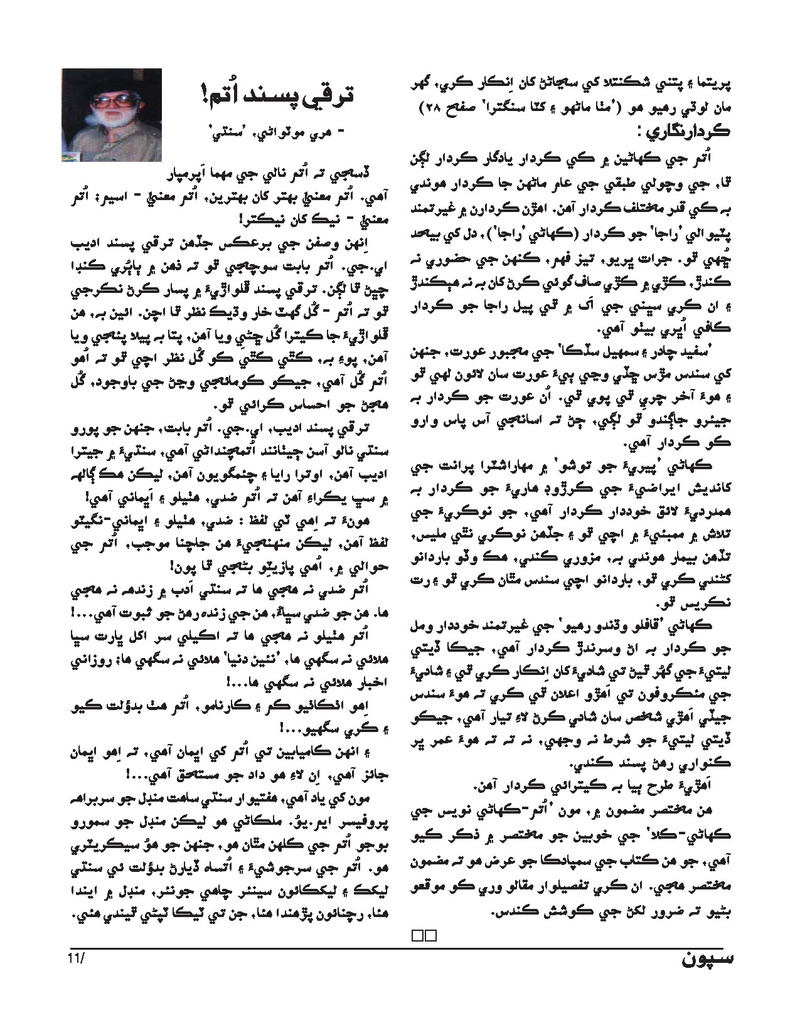 پريتما ۽ پتني شڪنتلا کي سڃاڻڻ کان اِنڪار ڪري، گهر
مان لوٽي رهيو هو (’مٺا ماڻهو ۽ کٽا سنگترا‘ صفحہ ٢٨)
ڪردارنگاري :
اُتم جي ڪهاڻين ۾ ڪي ڪردار يادگار ڪردار لڳن
ٿا، جي وچولي طبقي جي عام ماڻهن جا ڪردار هوندي
بہ ڪي قدر مختلف ڪردار آهن. اهڙن ڪردارن ۾ غيرتمند
پٽيوالي ’راجا‘ جو ڪردار (ڪهاڻي ’راجا‘)، دل کي بيحد
ڇُهي ٿو. جرات ڀريو، تيز فهم، ڪنهن جي حضوري نہ
ڪندڙ، کڙي ۾ کڙي صاف گوئي ڪرڻ کان بہ نہ هٻڪندڙ
۽ ان ڪري سڀني جي اَک ۾ ٿي پيل راجا جو ڪردار
ڪافي اُڀري بيٺو آهي.
’سفيد چادر ۽ سمهيل سڏڪا‘ جي مجبور عورت، جنهن
کي سندس مڙس ڇڏي وڃي ٻيءَ عورت سان لائون لهي ٿو
۽ هوءَ آخر چري ٿي پوي ٿي. اُن عورت جو ڪردار بہ
جيئرو جاڳندو ٿو لڳي، ڄڻ تہ اسانجي آس پاس وارو
ڪو ڪردار آهي.
ڪهاڻي ’پيريءَ جو توشو‘ ۾ مهاراشٽرا پرانت جي
کانديش ايراضيءَ جي ڪرڙوڍ هاريءَ جو ڪردار بہ
همدرديءَ لائق خوددار ڪردار آهي، جو نوڪريءَ جي
تلاش ۾ ممبئيءَ ۾ اچي ٿو ۽ جڏهن نوڪري نٿي مليس،
تڏهن بيمار هوندي بہ، مزوري ڪندي، هڪ وڏو باردانو
کڻندي ڪري ٿو، باردانو اچي سندس مٿان ڪري ٿو ۽ رت
نڪريس ٿو.
ڪهاڻي ’قافلو وڌندو رهيو‘ جي غيرتمند خوددار ومل
جو ڪردار بہ اڻ وسرندڙ ڪردار آهي، جيڪا ڏيتي
ليتيءَ جي گهُر ٿيڻ تي شاديءَ کان اِنڪار ڪري ٿي ۽ شاديءَ
جي منڪروفون تي اَهڙو اعلان ٿي ڪري تہ هوءَ سندس
جيڏي اَهڙي شخص سان شادي ڪرڻ لاءِ تيار آهي، جيڪو
ڏيتي ليتيءَ جو شرط نہ وجهي، نہ تہ تہ هوءَ عمر ڀر
ڪنواري رهڻ پسند ڪندي.
اَهڙيءَ طرح ٻيا بہ ڪيترائي ڪردار آهن.
هن مختصر مضمون ۾، مون ’اُتم-ڪهاڻي نويس جي
ڪهاڻي-ڪلا‘ جي خوبين جو مختصر ۾ ذڪر ڪيو
آهي، جو هن ڪتاب جي سمپادڪا جو عرض هو تہ مضمون
مختصر هجي. ان ڪري تفصيلوار مقالو وري ڪو موقعو
بڻيو تہ ضرور لکڻ جي ڪوشش ڪندس.
□□
ترقي پسند اُتم!
- هري موٽواڻي، ’سنڌي‘
ڏسجي تہ اُتم نالي جي مهما اَپرمپار
آهي. اُتم معنيٰ بهتر کان بهترين، اُتم معنيٰ - اسيم؛ اُتم
معنيٰ - نيڪ کان نيڪتر!
اِنهن وصفن جي برعڪس جڏهن ترقي پسند اديب
اي.جي. اُتم بابت سوچجي ٿو تہ ذهن ۾ ٻاٻُري ڪنڊا
چڀڻ ٿا لڳن. ترقي پسند ڦلواڙيءَ ۾ پسار ڪرڻ نڪرجي
ٿو تہ اُتم - گُل گهٽ خار وڌيڪ نظر ٿا اچن. ائين بہ، هن
ڦلواڙيءَ جا ڪيترا گُل ڇڻي ويا آهن، پتا بہ پيلا پئجي ويا
آهن، پوءِ بہ، ڪٿي ڪٿي ڪو گُل نظر اچي ٿو تہ اُهو
اُتم گُل آهي، جيڪو ڪومائجي وڃڻ جي باوجود، گُل
هجڻ جو احساس ڪرائي ٿو.
ترقي پسند اديب، اي.جي. اُتم بابت، جنهن جو پورو
سنڌي نالو آسن ڄيٺانند اُتمچنداڻي آهي، سنڌيءَ ۾ جيترا
اديب آهن، اوترا رايا ۽ چئمگويون آهن، ليڪن هڪ ڳالهہ
۾ سڀ يڪراءِ آهن تہ اُتم ضدي، هٺيلو ۽ اَڀماني آهي!
هونءَ تہ اِهي ٽي لفظ : ضدي، هٺيلو ۽ اڀماني-نگيٽو
لفظ آهن، ليڪن منهنجيءَ هن جاچنا موجب، اُتم جي
حوالي ۾، اُهي پازيٽو بڻجي ٿا پون!
اُتم ضدي نہ هجي ها تہ سنڌي اَدب ۾ زندهہ نہ هجي
ها. هن جو ضدي سڀاءُ، هن جي زنده رهڻ جو ثبوت آهي...!
اُتم هٺيلو نہ هجي ها تہ اڪيلي سر اکل ڀارت سڀا
هلائي نہ سگهي ها، ’نئين دنيا‘ هلائي نہ سگهي ها؛ روزاني
اخبار هلائي نہ سگهي ها...!
اِهو اٿڪائيو ڪم ۽ ڪارنامو، اُتم هٺ بدؤلت ڪيو
۽ ڪري سگهيو...!
۽ انهن ڪاميابين تي اُتم کي اڀمان آهي، تہ اِهو اڀمان
جائز آهي، اِن لاءِ هو داد جو مستحق آهي...!
مون کي ياد آهي، هفتيوار سنڌي ساهت منڊل جو سربراهہ
پروفيسر ايم.يوُ. ملڪاڻي هو ليڪن منڊل جو سمورو
ٻوجو اُتم جي ڪلهن مٿان هو، جنهن جو هوُ سيڪريٽري
هو. اُتم جي سرجوشيءَ ۽ اُتساهہ ڏيارڻ بدؤلت ئي سنڌي
ليکڪ ۽ ليکڪائون سينئر چاهي جونئر، منڊل ۾ ايندا
هئا، رچنائون پڙهندا هئا، جن تي ٽيڪا ٽپڻي ٿيندي هئي.
11/
سپون